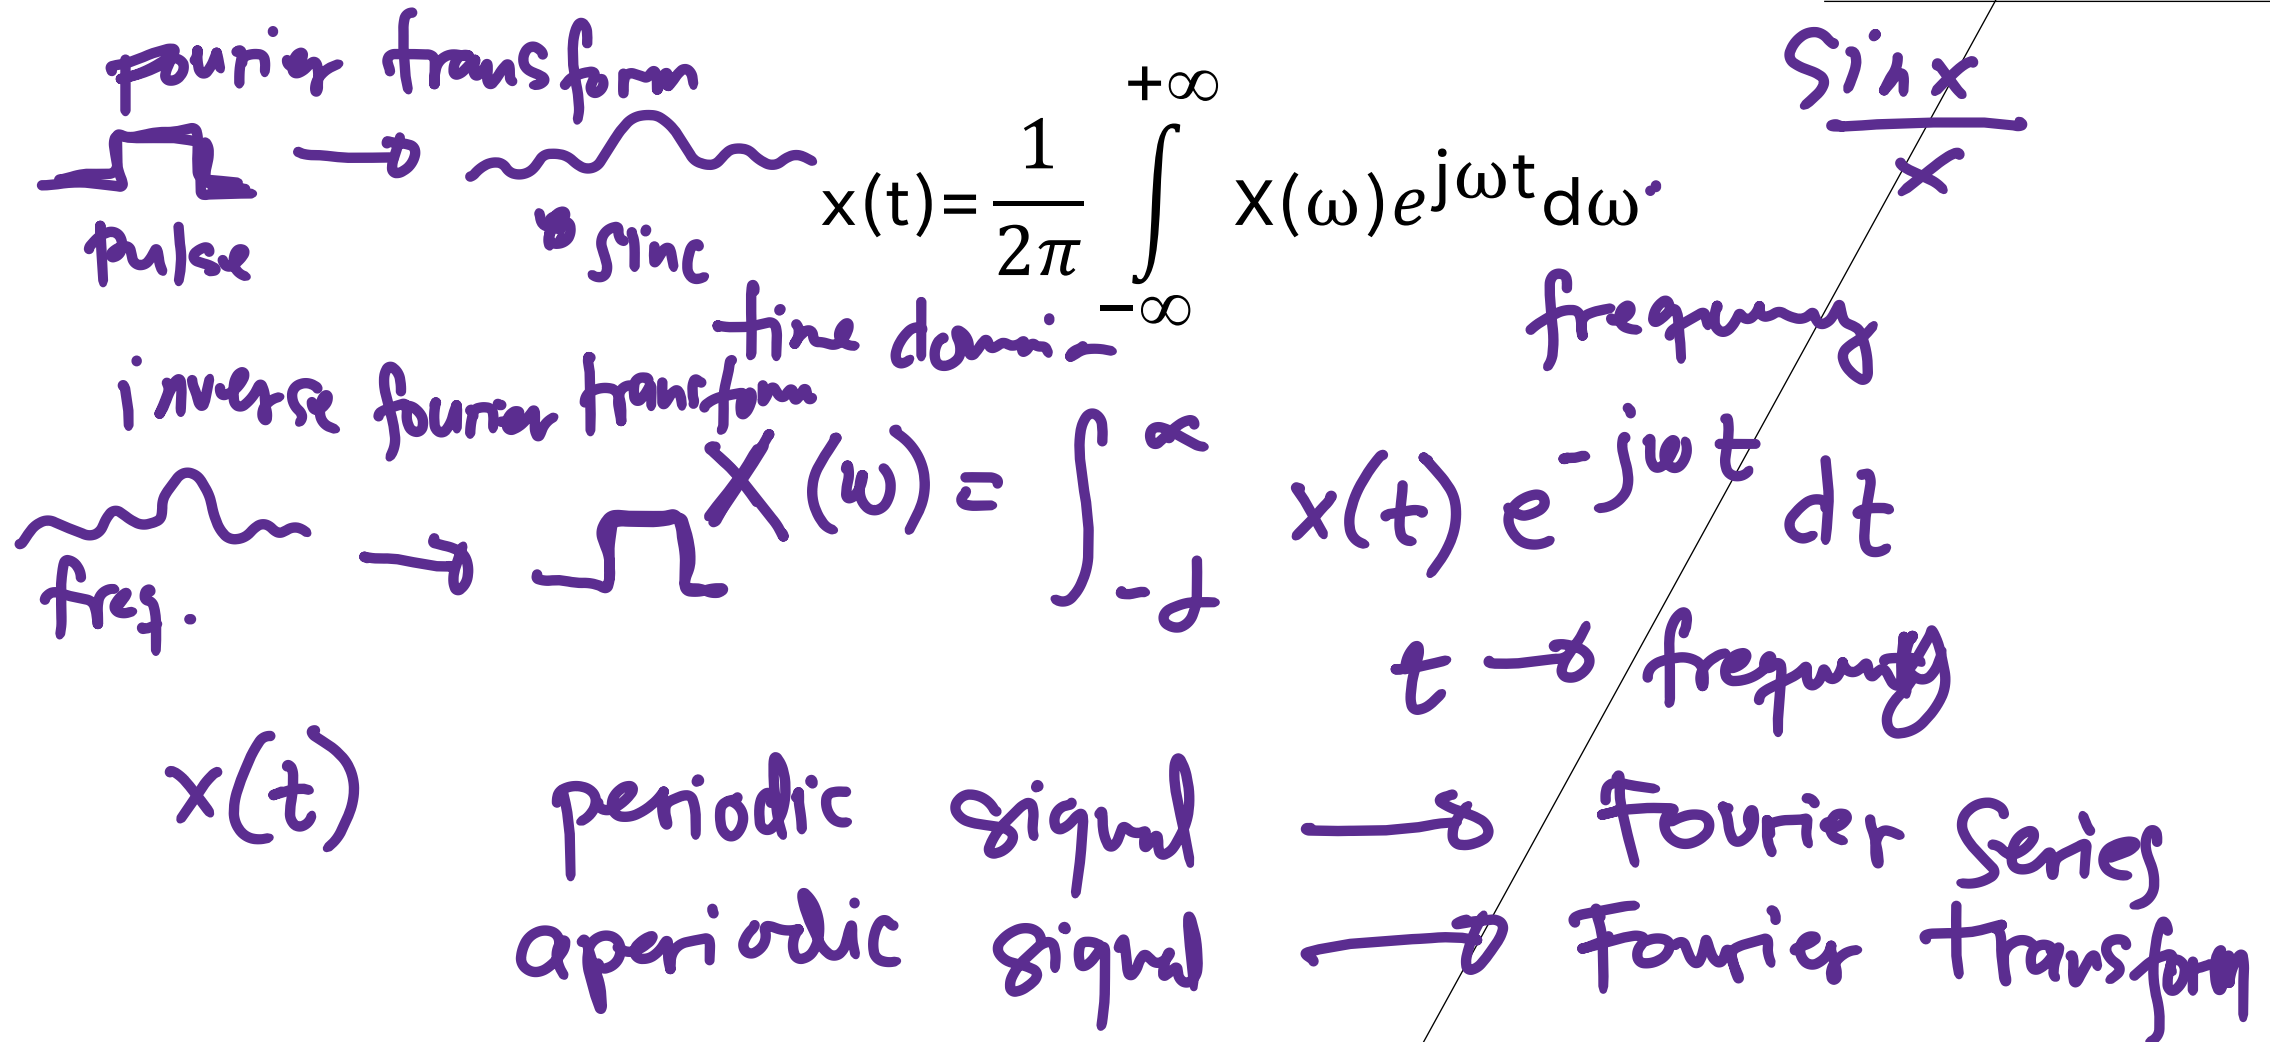 fourier transform
sin x
x
pulse
sinc
x(t)= 1/2π ∫_{-∞}^{+∞} X(ω)e^{jωt}dω
time domain
frequency
inverse fourier transform
X(ω) = ∫_{-∞}^{∞} x(t) e^{-jωt} dt
freq.
t → frequency
x(t)
periodic signal → Fourier Series
aperiodic signal → Fourier transform